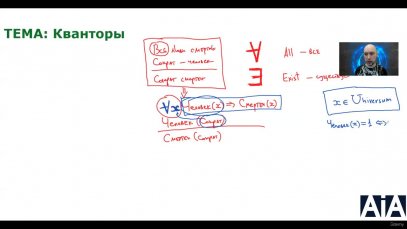 ТЕМА: Кванторы
Все люди смертны
Сократ — человек
Сократ смертен
∀ All — все
∃ Exist — существ
∀x Человек(x) ⇒ Смертен(x)
Человек (Сократ)
Смертен (Сократ)
x ∈ Universum
Человек(x) = 1 ⇔
AiA
Udemy